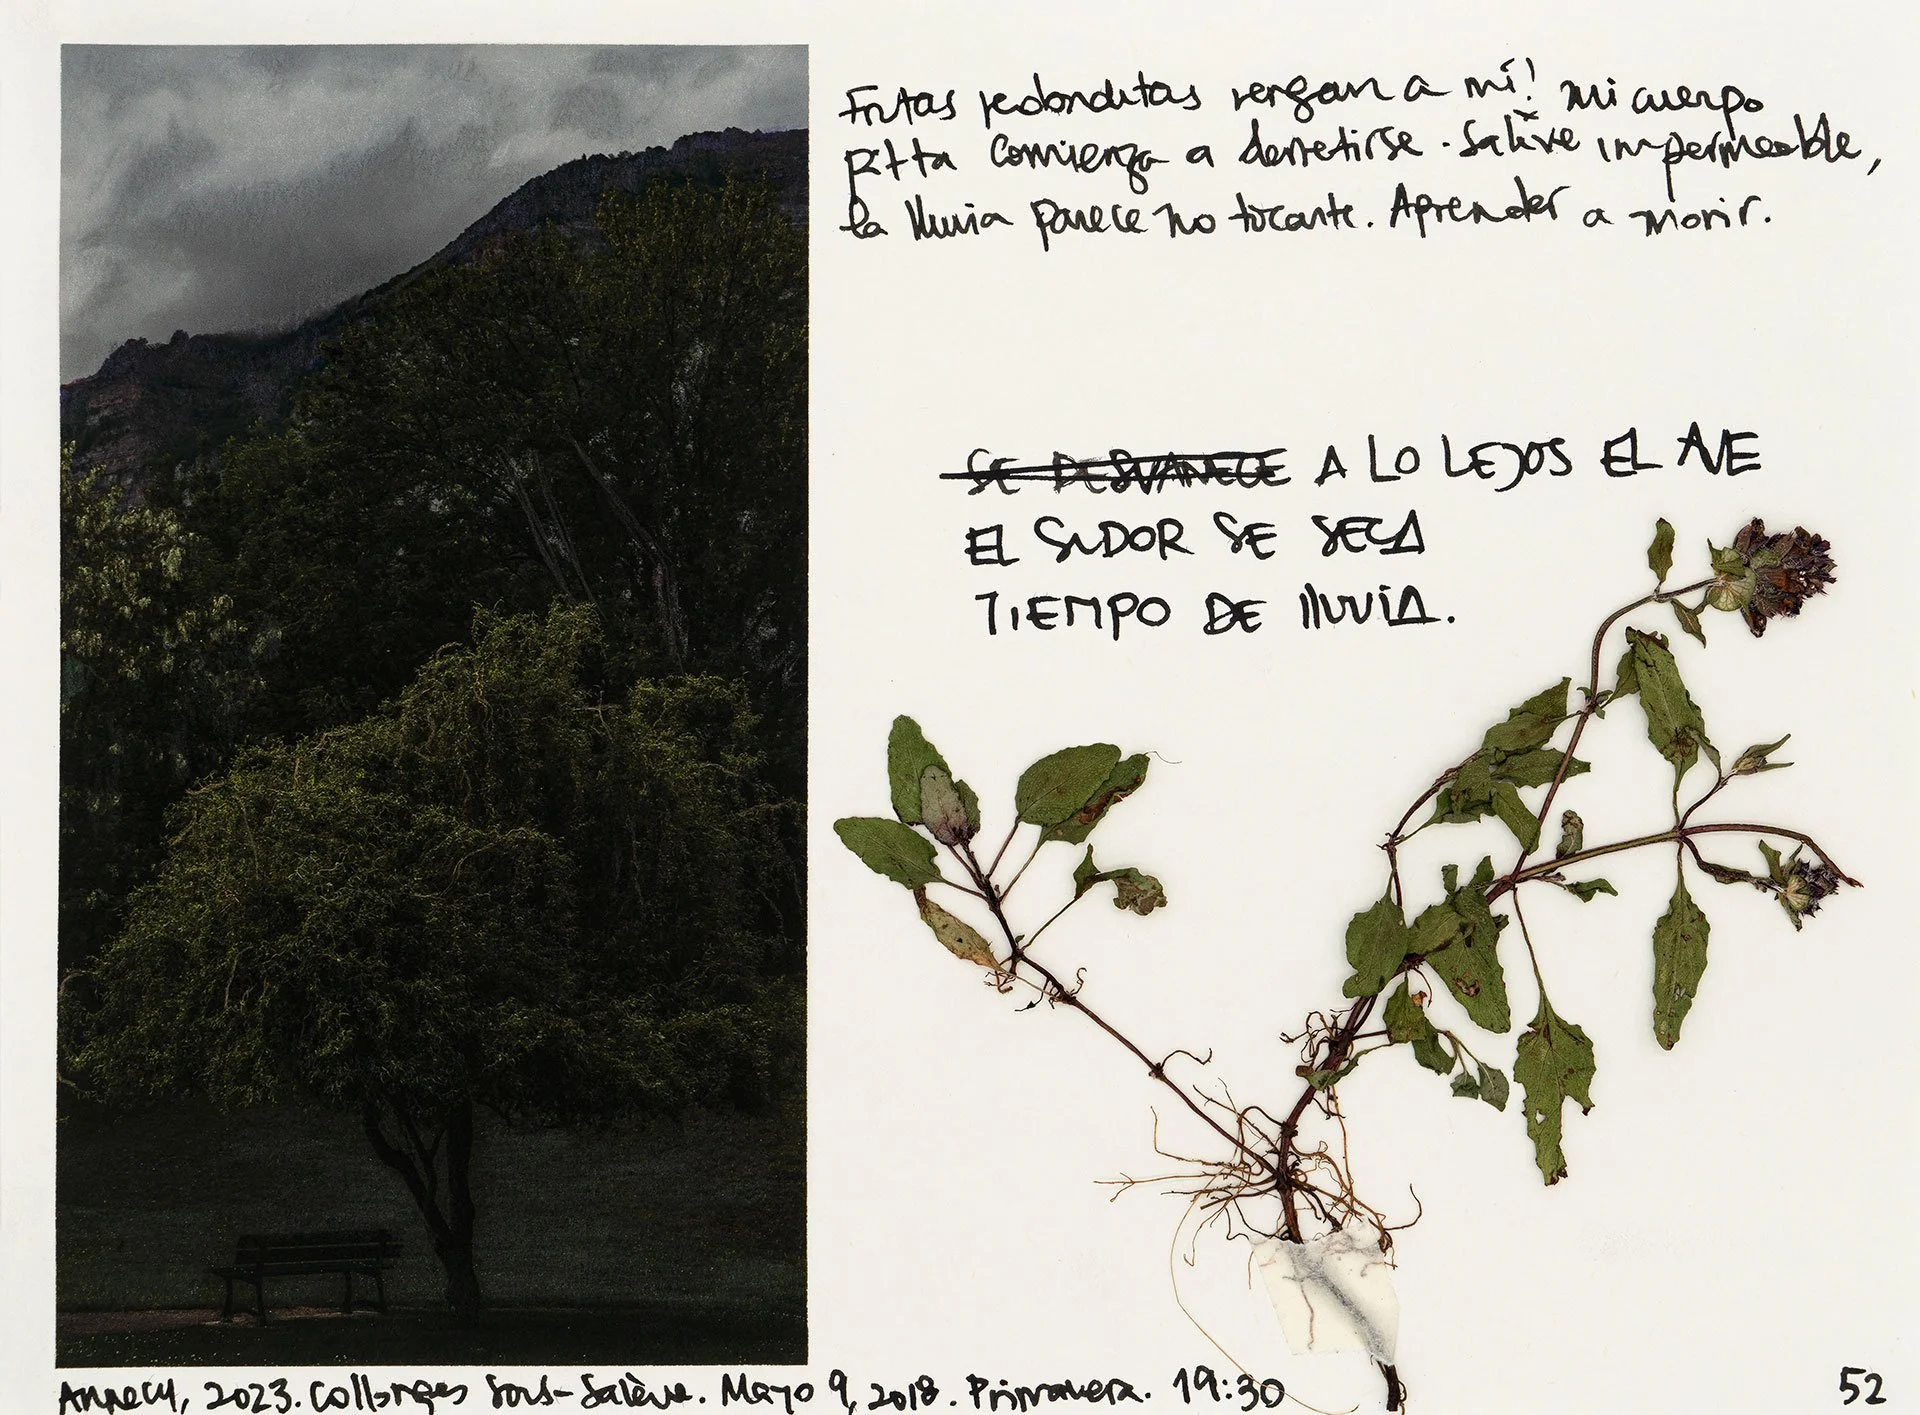 Frutas redonditas vengan a mí! Mi cuerpo
pitta comienza a derretirse. Salive impermeable,
la lluvia parece no tocarte. Aprender a morir.
SE DESVANECE A LO LEJOS EL AVE
EL SUDOR SE SECA
TIEMPO DE lluviA.
Annecy, 2023. Collonges Sous-Salève. Mayo 9, 2018. Primavera. 19:30
52